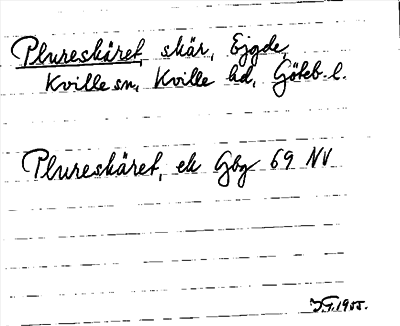 Plureskäret, skär, Ejgde,
Kville sn, Kville hd, Göteb. l.
Plureskäret, ek Gbg 69 NV
1955.